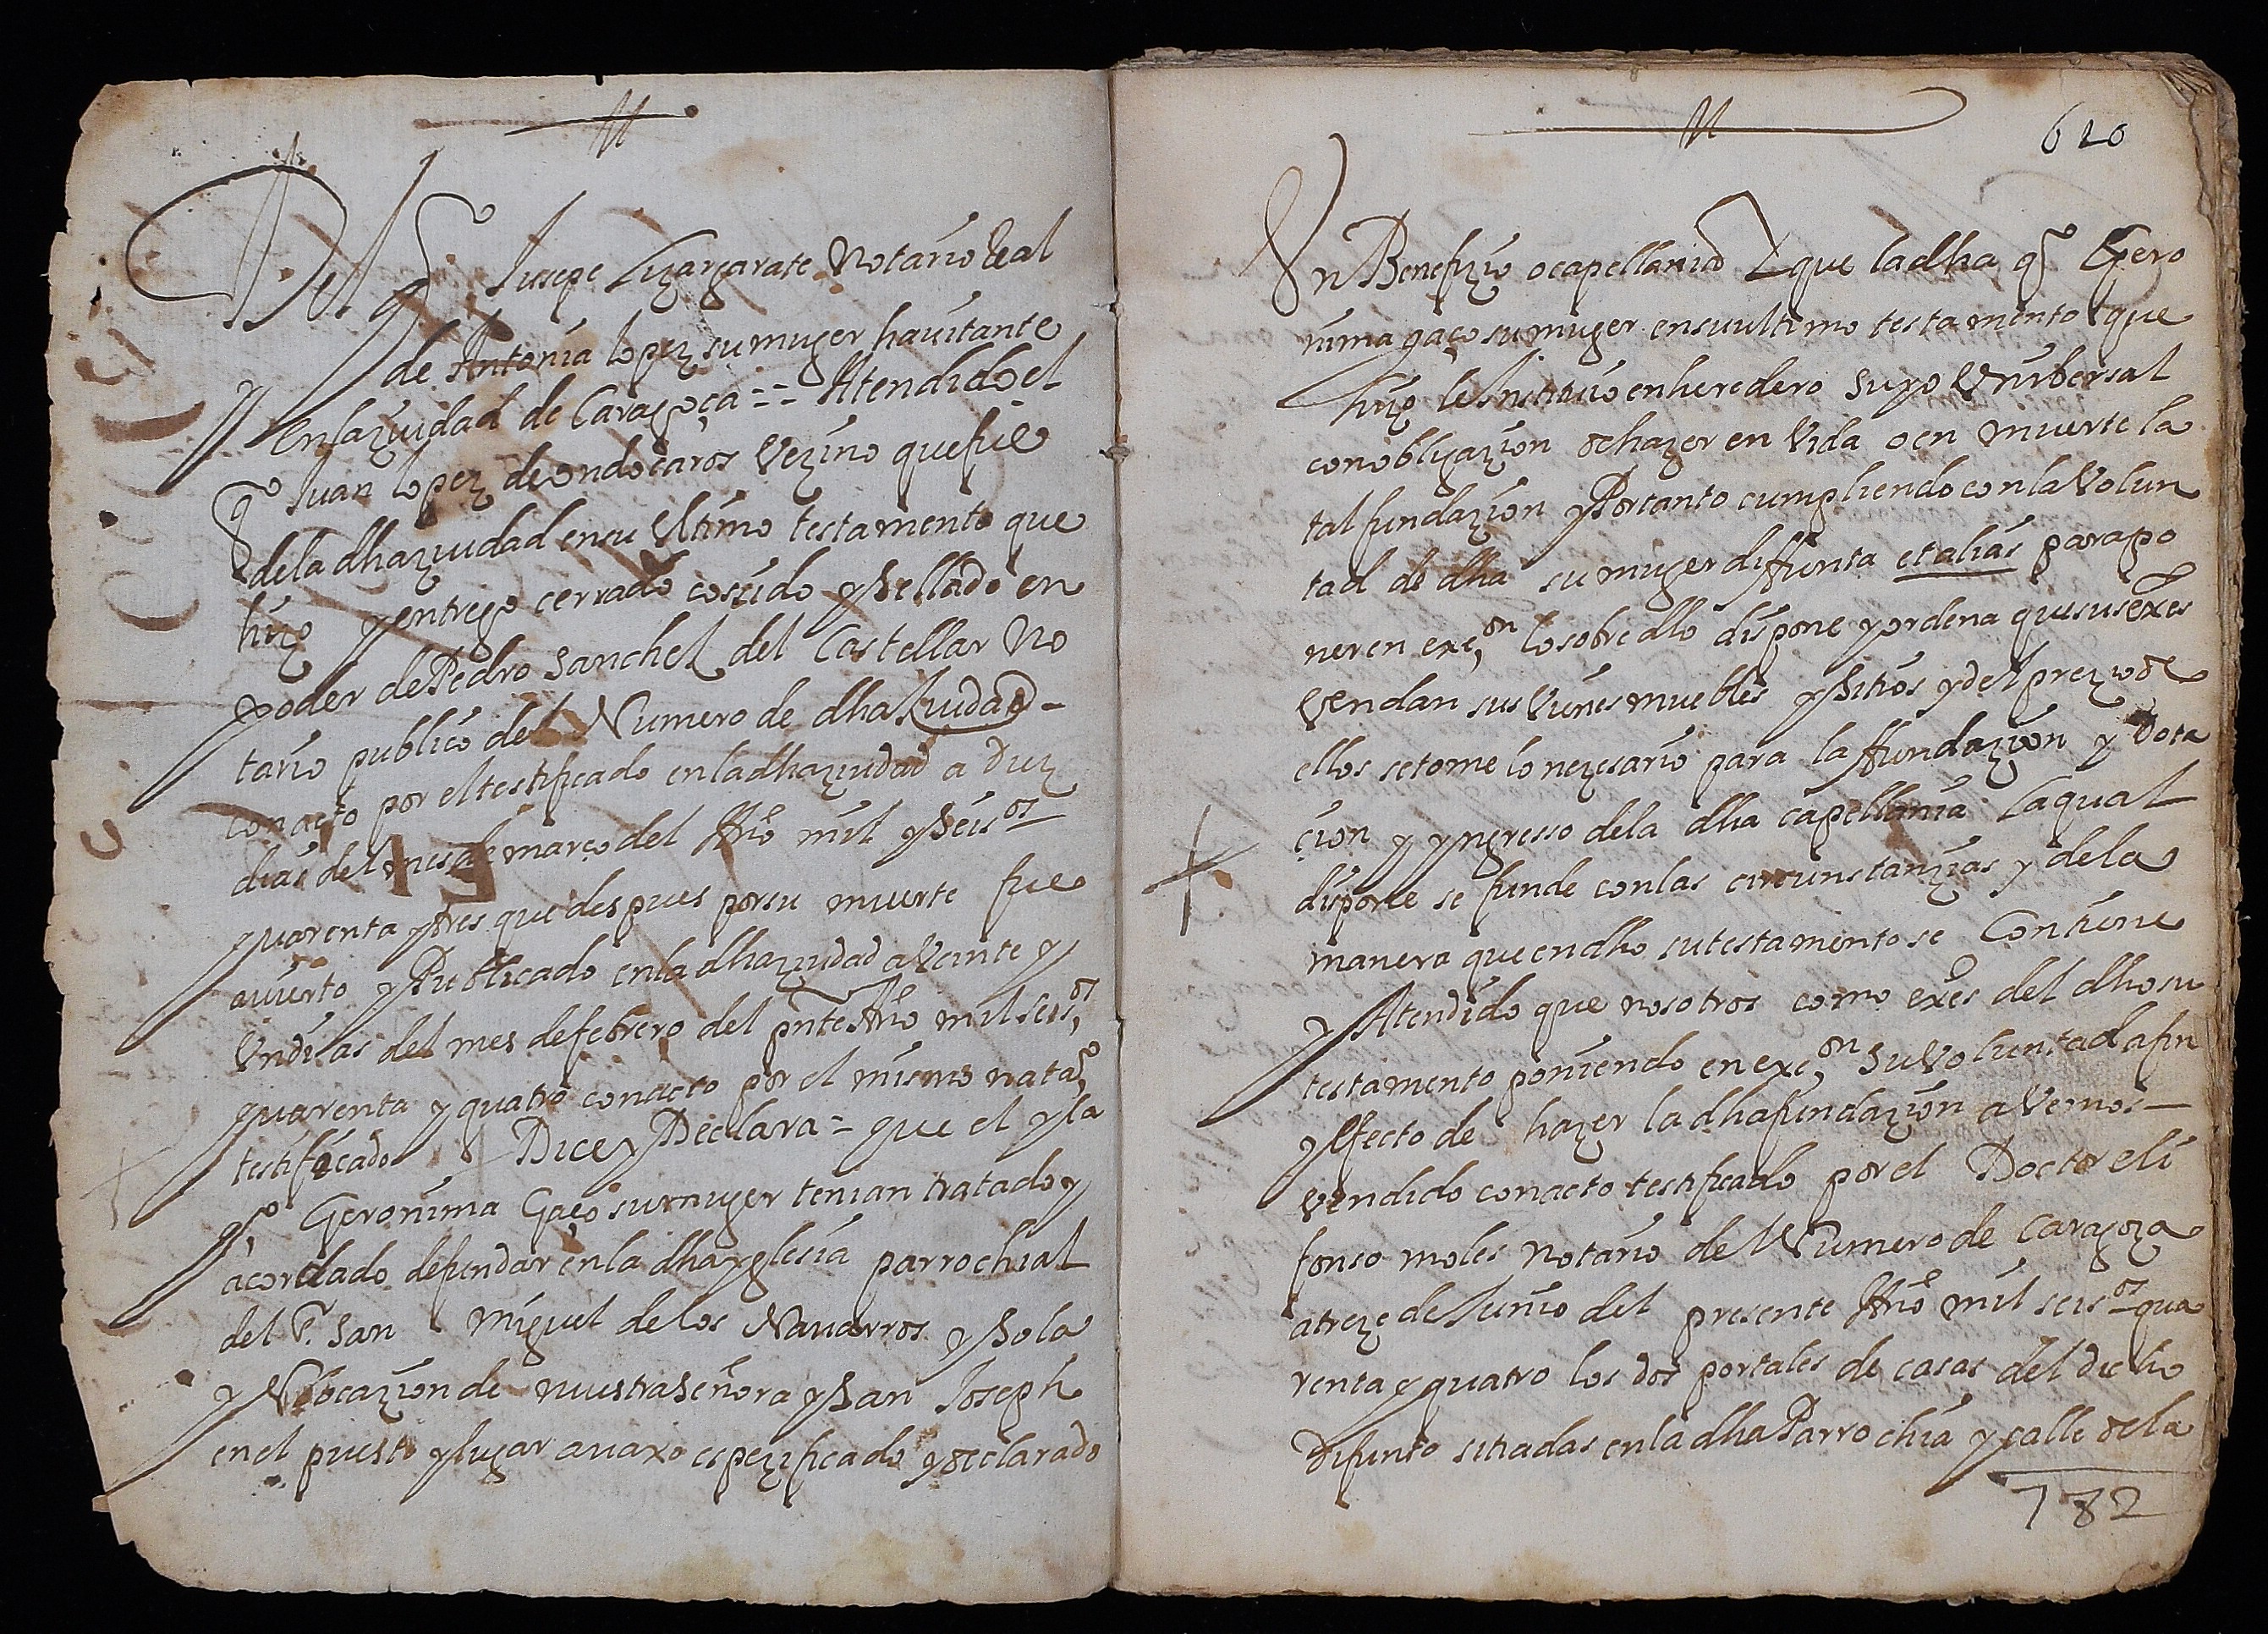 Del q.º Jusepe Lizargarate Notario Real
y de Antonia lopez su muger havitante
en la ziudad de Caragoça == Atendido el
q.º Juan lopez de ondocaros Vezino que fue
de la dha ziudad en su Ultimo testamento que
hizo y entrego cerrado cosido y Sellado en
poder de Pedro Sanchez del Castellar No
tario publico del Numero de dha Ziudad -
con acto por el testificado en la dha ziudad a diez
dias del mes de março del Año mil y Seisos
quarenta y tres que despues por su muerte fue
auierto y Publicado en la dha ziudad a Veinte y
Un dias del mes de febrero del pnte Año mil seisos
quarenta y quatro con acto por el mismo notaº
testificado Dice y Declara = que el y la
qº Geronima Gaço su muger tenian tratado y
acordado de fundar en la dha yglesia parrochial
del S. San Miguel de los Nauarros y So la
y Vbocazion de nuestra Señora y San Joseph
en el puesto y lugar auaxo espezificado y declarado
620
Vn Benefizio o capellania Y que la dha qº Gero
nima gaço su muger en su ultimo testamento que
hizo le Instituio en heredero suyo Vniberssal
con obligazion de hazer en Vida o en muerte la
tal fundazion y Por tanto cumpliendo con la Volun
tad de dha su muger diffunta et alias para po
ner en exeon lo sobre dho dispone y ordena que sus exes
Vendan sus Vienes muebles y Sitios y del prezio de
ellos se tome lo nezesario para la ffundazion y Dota
çion y yngresso de la dha capellania La qual
dispone se funde con las circunstanzias y de la
manera que en dho su testamento se Contiene
y Atendido que nosotros como exes del dho su
testamento poniendo en exeon su Voluntad a fin
y effecto de hazer la dha fundazion avemos -
Vendido con acto testificado por el Doctor eli
fonso moles notario del Numero de Caragoza
a treze de Junio del presente Año mil seisos qua
renta y quatro los dos portales de casas del dicho
Difunto sitiadas en la dha Parrochia y calle de la
782